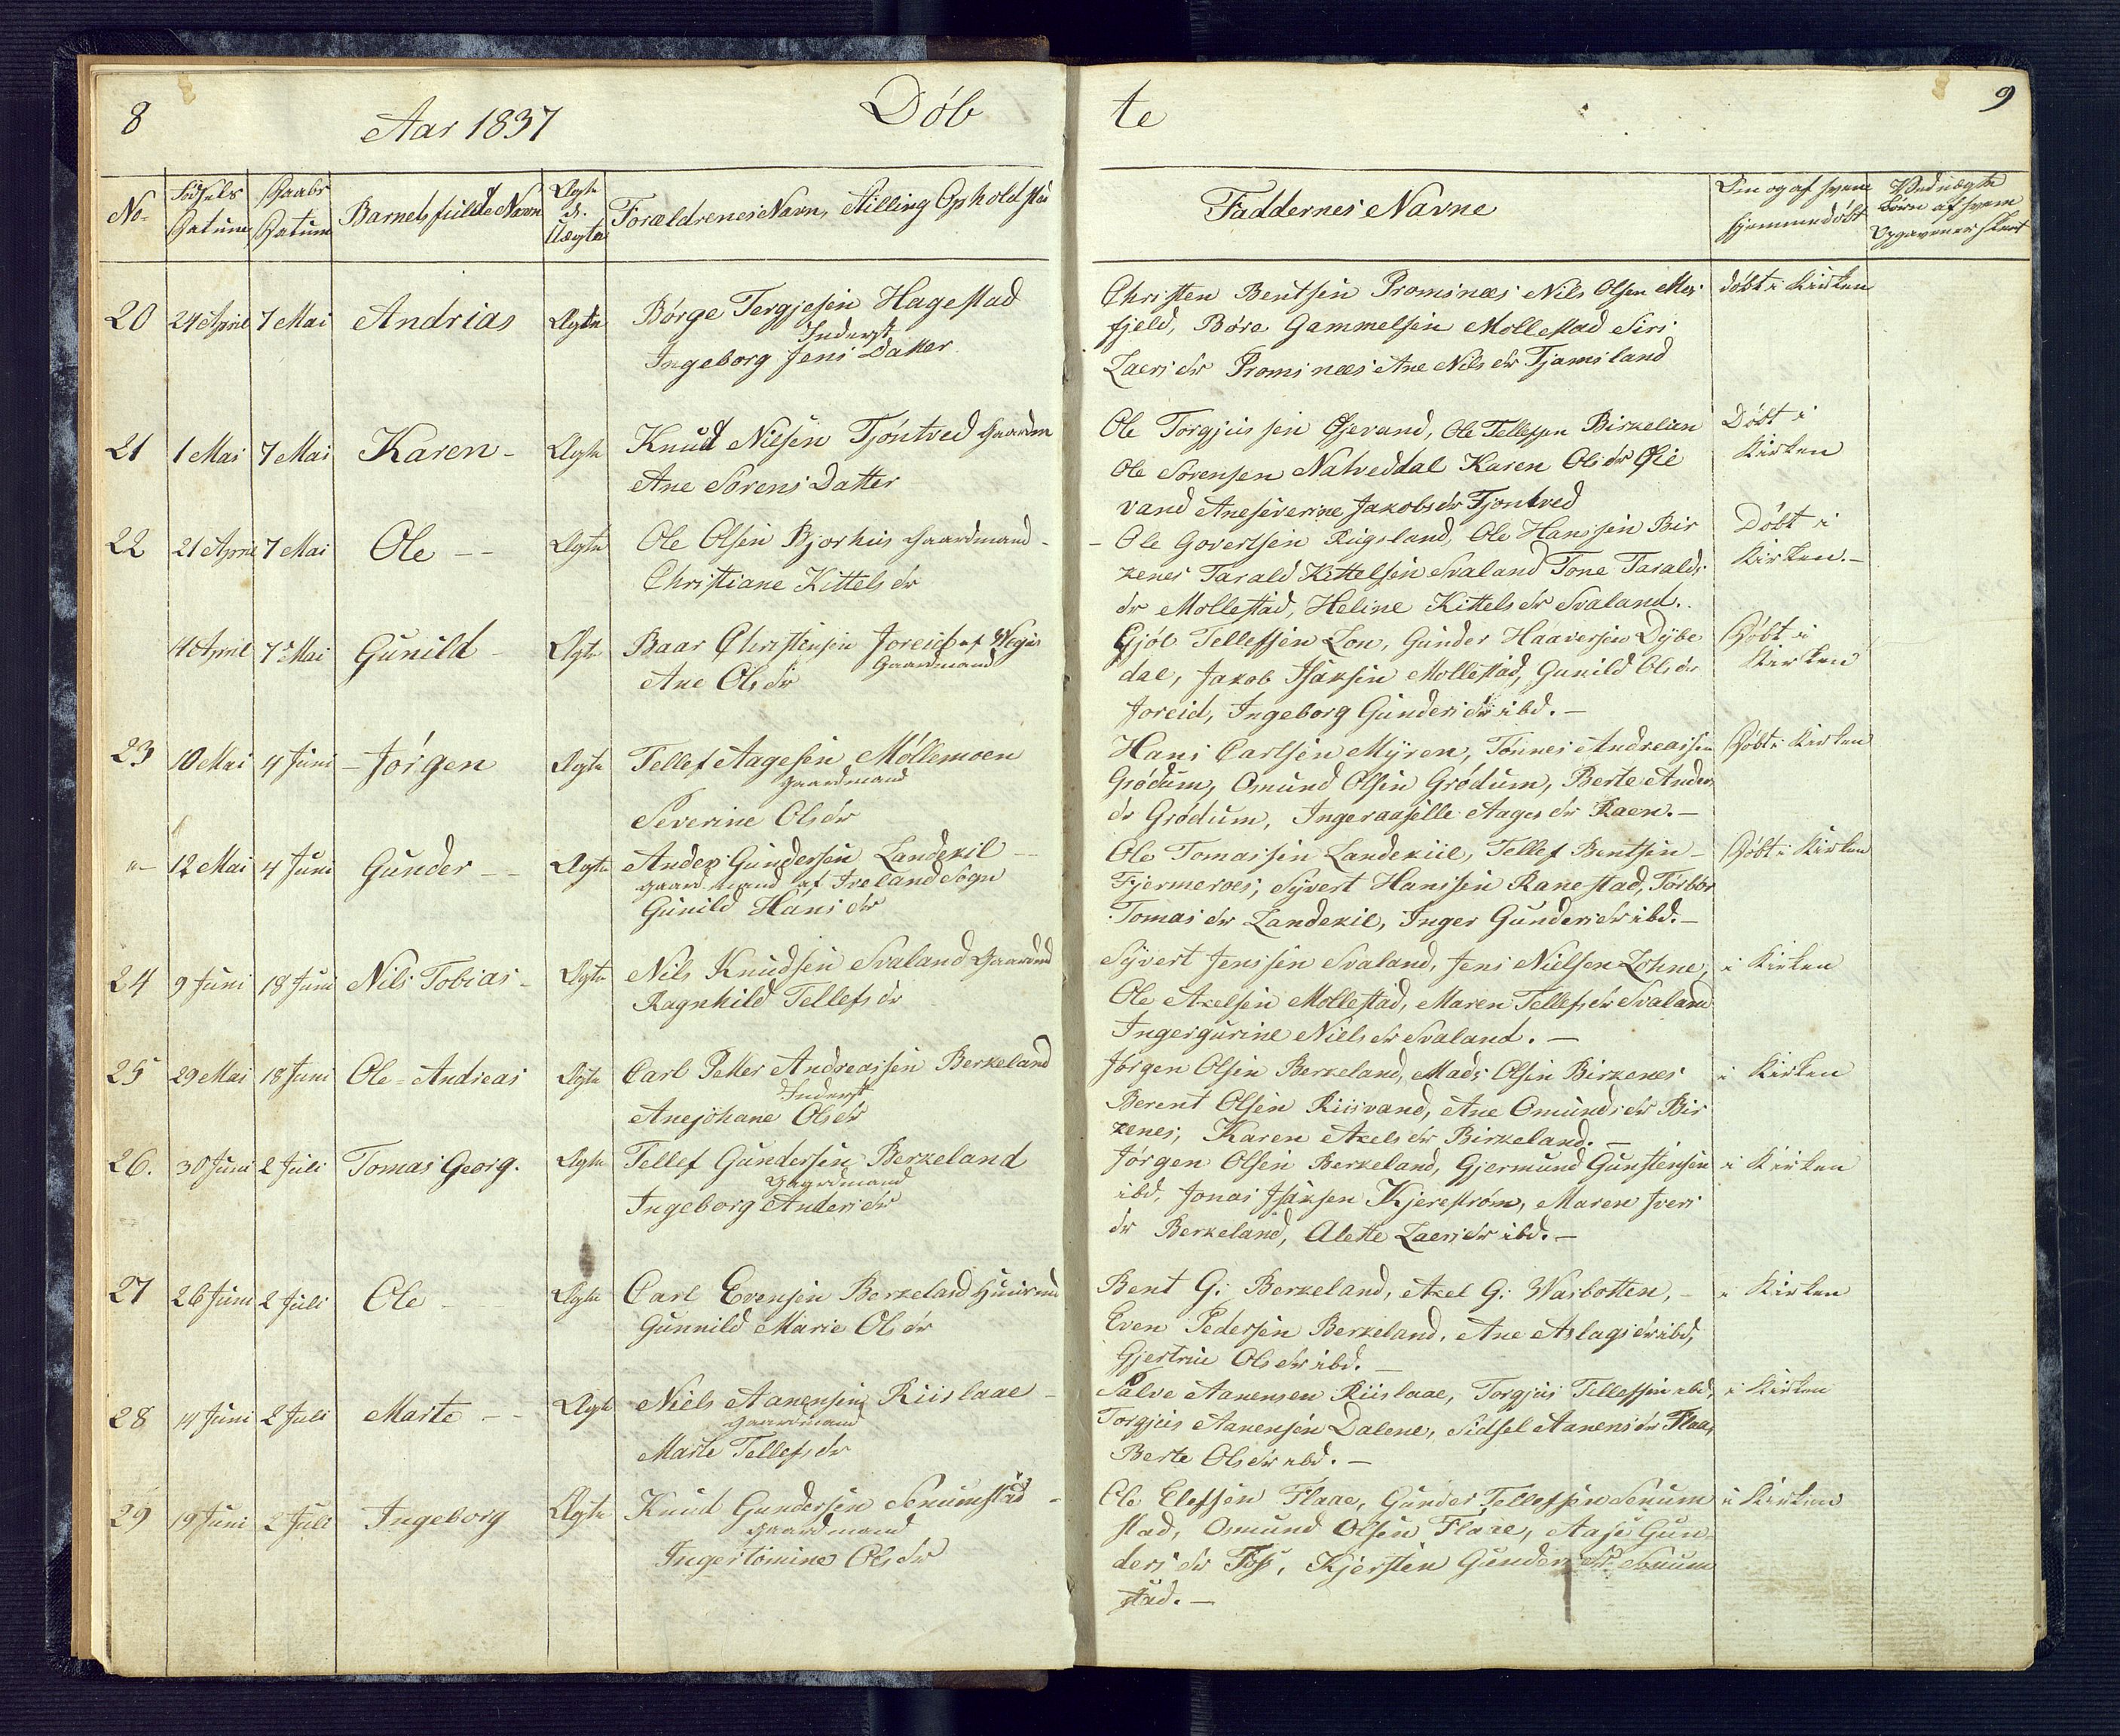 8
Aar 1837
Döb
te
9
No.
Födsels Datum
Daabs Datum
Barnets fulde Navn
Ægte el. Uægte
Forældrenes Navn, Stilling Opholdsted
Faddernes Navne
Om og af hvem hjemmedöbt
Ved uægte Börn af hvem Opgaven er skeet
20 24 April 7 Mai Andrias Ægte Börge Tergjesen Hagestad
Inderst
Ingeborg Jens Datter
Christen Bentsen Promsnæs Nils Olsen Mes
fjeld,Böre Gammelsen Mollestad Siri
Laers dr Promsnæs Ane Nils dr Tjamsland
döbt i Kirken
21 1 Mai 7 Mai Karen - Ægte Knud Nilsen Tjöntved Gaardm
Ane Sörens Datter
Ole Torgjussen Øsevand, Ole Tellefsen Birkelan
Ole Sörensen Natveddal Karen Ols dr Øse
vand Aneseverine Jakobsdr Tjontved
Döbt i
Kirken
22 21 April 7 Mai Ole - - Ægte Ole Olsen Bjorhus Gaardmand -
Christiane Kittels dr
- Ole Govertsen Rugsland, Ole Hanssen Bir
kenes Tarald Kittelsen Svaland Tone Taralds
dr Mollestad, Heline Kittels dr Svaland.
Döbt i
Kirken. -
4 April 7 Mai Gunild - Ægte Baar Christensen Joreid af Wegus
Gaardmand
Ane Ols dr
Gjöl Tellefsen Lon, Gunder Haaversen Dybe
dal, Jakob Isaksen Mollestad, Gunild Ols dr
Joreid, Ingeborg Gunders dr ibd. -
Döbt i
Kirken
23 10 Mai 4 Juni - Jörgen Ægte Tellef Aagesen Möllemoen
Gaardmand
Severine Ols dr
Hans Carlsen Myren, Tönnes Andreassen
Grödum, Omund Olsen Grödum, Berte Anders
dr Grödum, Ingeraaselle Aages dr Raen. -
Döbt i Kirken
" - 12 Mai 4 Juni Gunder - - Ægte Anders Gundersen Landekil -
Gaardmand af Iveland Sogn
Gunild Hans dr
Ole Tomassen Landekiil, Tellef Bentsen -
Fjermeros, Syvert Hanssen Ranestad, Torbör
Tomas dr Landekil, Inger Gunders dr ibd. -
Döbt i Kirken
24 9 Juni 18 Juni Nils Tobias - Ægte Nils Knudsen Svaland Gaardmd
Ragnhild Tellefs dr
Syvert Jenssen Svaland, Jens Nielsen Lohne,
Ole Axelsen Mollestad, Maren Tellefs dr Svaland
Ingergurine Niels dr Svaland. -
i Kirken
25 29 Mai 18 Juni Ole = Andreas Ægte Carl Petter Andreassen Berkeland
Inderst
Anejohane Ols dr
Jörgen Olsen Berkeland, Mads Olsen Birkenes
Berent Olsen Riisvand, Ane Omunds dr Bir
kenes, Karen Axels dr Birkeland. -
i Kirken
26. 30 Juni 2 Juli Tomas Georg. Ægte Tellef Gundersen Berkeland
Gaardmand
Ingeborg Anders dr
Jörgen Olsen Berkeland, Gjermund Gunstensen
ibd, Jonas Isaksen Kjereström, Maren Ivers
dr Berkeland, Alette Laers dr ibd. -
i Kirken
27 26 Juni 2 Juli Ole - Ægte Carl Evensen Berkeland Huusmd
Gunnild Marie Ols dr
Bent G: Berkeland, Axel G: Warbotten, -
Even Pedersen Berkeland, Ane Aslags dr ibd,
Gjertrue Ols dr ibd. -
i Kirken
28 14 Juni 2 Juli Marte - - Ægte Niels Aanensen Riislaae -
Gaardmand
Marte Tellefs dr
Salve Aanensen Riislaae, Torgjus Tellefsen ibd,
Torgjus Aanensen Dalene, Sidsel Aanens dr Flaa,
Berte Ols dr ibd. -
i Kirken
29 19 Juni 2 Juli Ingeborg Ægte Knud Gundersen Senumstad -
Gaardmand
Ingertomine Ols dr
Ole Elefsen Flaae, Gunder Tellefsen Senum
stad, Omund Olsen Flaae, Aase Gun
ders dr Foss, Kjersten Gunders dr Senum
stad. -
i Kirken